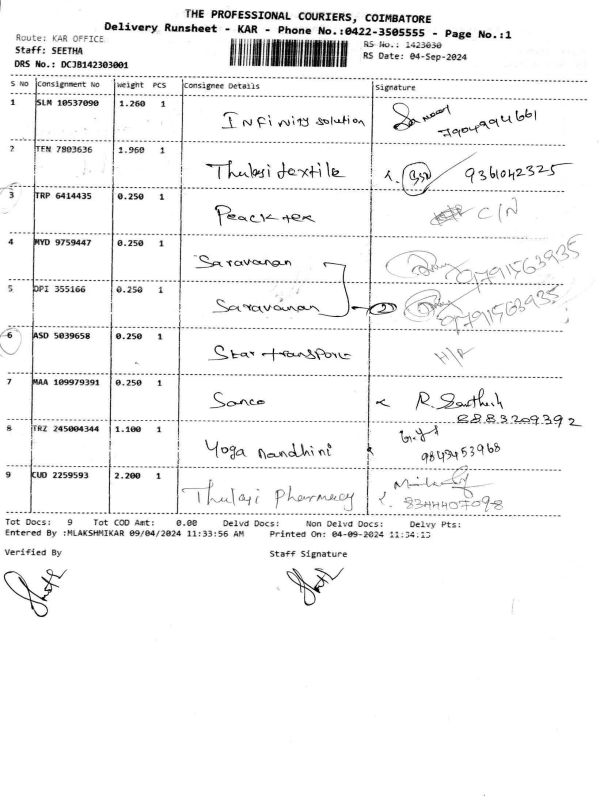 THE PROFESSIONAL COURIERS, COIMBATORE
Delivery Runsheet - KAR - Phone No.:0422-3505555 - Page No.:1
Route: KAR OFFICE
RS No.: 1423030
Staff: SEETHA
RS Date: 04-Sep-2024
DRS No.: DCJB142303001
S No Consignment No Weight PCS Consignee Details Signature
1 SLM 10537090 1.260 1 Infinity solution 7904994661
2 TEN 7803636 1.960 1 Thulasi textile 9361042325
3 TRP 6414435 0.250 1 Peacktex C/N
4 MYD 9759447 0.250 1 Saravanan 9791563935
5 DPI 355166 0.250 1 Saravanan 2 9791563935
6 ASD 5039658 0.250 1 Star transport
7 MAA 109979391 0.250 1 Sanco R. Santhosh
8883209392
8 TRZ 245004344 1.100 1 Yoga nandhini 9843453968
9 CUD 2259593 2.200 1 Thulasi Pharmacy 8344407098
Tot Docs: 9 Tot COD Amt: 0.00 Delvd Docs: Non Delvd Docs: Delvy Pts:
Entered By :MLAKSHMIKAR 09/04/2024 11:33:56 AM Printed On: 04-09-2024
Verified By Staff Signature